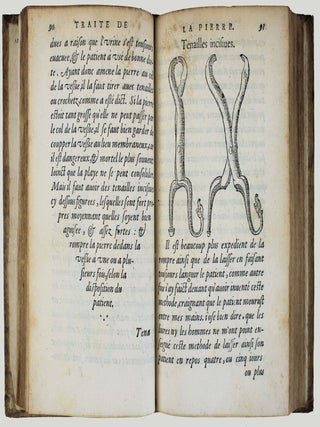 96 TRAITE DE
dues a raison que l'vrine s'est tousiours
euacuee, & le patient à vsé de bonne diete
Ayant donc amené la pierre au col
de la vessie, il la faut tirer auec tenailles
ou crochet, comme a esté dict. Si la pierre
estoit tant grosse qu'elle ne peut passer par
le col de la vessie, il se faut bien garder de
coupper la vessie au lieu membraneux, car
il est dangereux, & mortel le plus souuent,
ioinct que la playe ne se peut consolider.
Mais il faut auoir des tenailles incisiues
cy dessous figurees, lesquelles sont fort pro-
pres moyennant quelles soyent bien
aguisees, & assez fortes: &
rompre la pierre dedans la
vessie a vne ou a plu-
sieurs fois, selon la
disposition du
patient.
Tena
LA PIERRE. 97
Tenailles incisiues.
Il est beaucoup plus expedient de la
rompre ainsi que de la laisser en faisant
tousiours languir le patient, comme autre
fois i'ay faict deuant qu'auoir inuenté ceste
methode, craignant que le patient mourust
entre mes mains. i'ose bien dire, que les
liures ny les hommes ne m'ont point en-
seigné ceste methode de laisser ainsi son
patient en repos quatre, ou cinq iours
ou plus